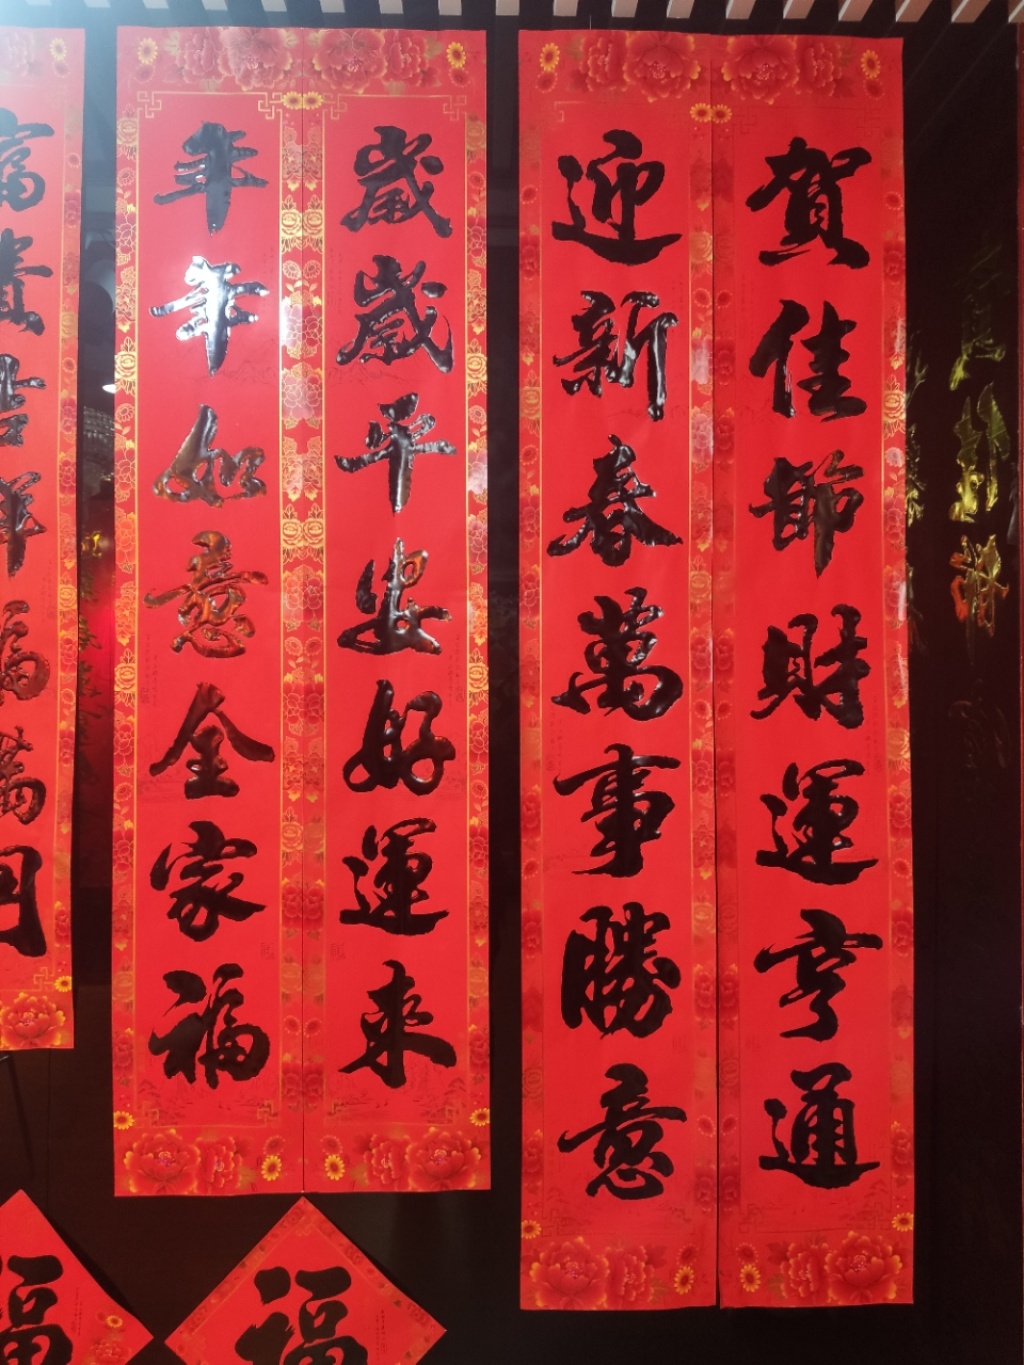 賀佳節財運亨通
迎新春萬事勝意
歲歲平安好運來
年年如意全家福
富貴吉祥福滿門
福
福